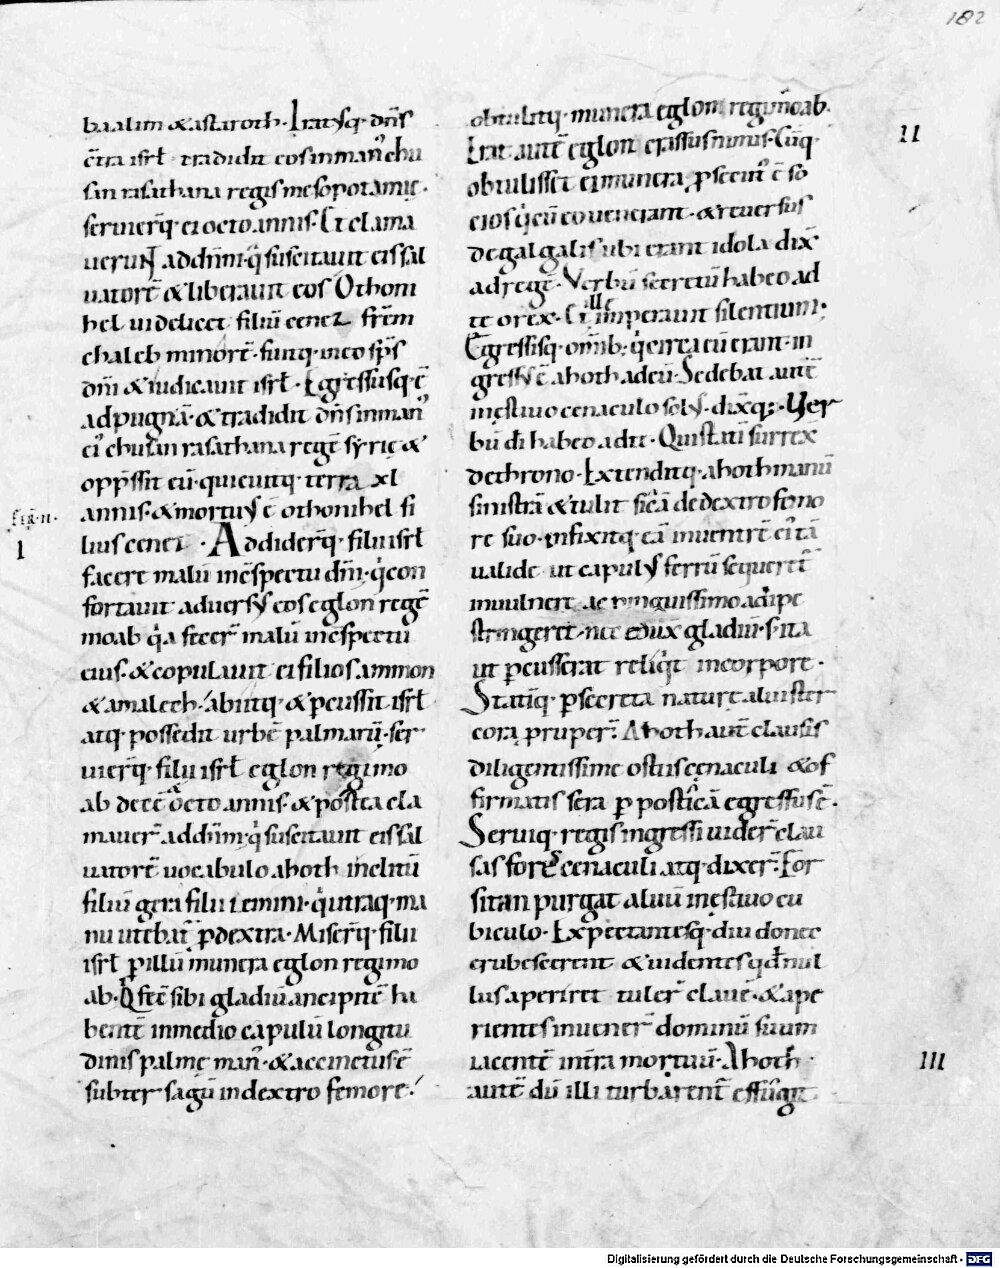 182
baalim &astaroth· Iratusq· dñs
c̄tra isrł· tradidit eos in man᷒ chu
san rasathaim regis mesopotamię·
seruier̄q· ei octo annis· Et clama
uerunt ad dñm· q̇ suscitauit eis sal
uatorē & liberauit eos Othoni
hel uidelicet filiū cenez fr̄em
chaleb minorē· fuitq· in eo sp̄s
dñi & iudicauit isrł· Egressusq· ē
ad pugnā· & tradidit dñs in man᷒
ei᷒ chusan rasathaim regē syrię &
opp̄ssit eū· quieuitq· terra xl
annis· & mortuus ē othonihel fi
lius cenez· Addider̄q· filii isrł
facere malū in c̄spectu dñi· q̇ con
fortauit aduersus eos eglon regē
moab q̇a fecer̄ malū in c̄spectu
eius· & copulauit ei filios ammon
& amalech· abiitq· & p̱cussit isrł
atq· possedit urbē palmarū· ser
uier̄q· filii isrł eglon regi mo
ab decē & octo annis· & postea cla
mauer̄ ad dñm· q̇ suscitauit eis sal
uatorē uocabulo ahoth inclitū
filiū gera filii iemini· q̇ utraq· ma
nu utebat᷒ p̱ dextra· Miser̄q· filii
isrł p̱ illū munera eglon regi mo
ab· Q̇ fec̄ sibi gladiū ancipitē ha
bentē in medio capulū longitu
dinis palmę man᷒· & accinctus ē
subter sagū in dextro femore·
obtulitq· munera eglon regi moab·
Erat autē eglon crassus nimis· Cūq·
obtulisset ei munera p̱secut᷒ ē so
cios q̇ cū eo uenerant· & reuersus
de galgalis ubi erant idola dix̄
ad regē· Verbū secretū habeo ad
te o rex· Et ille imperauit silentium·
Egressisq· omīb; q̇ circa eū erant· in
gressus ē ahoth ad eū· Sedebat autē
in ęstiuo cenaculo solus· dixitq;· Uer
bū dī habeo ad te· Qui statī surrex̄
de throno· Extenditq· ahoth manū
sinistrā & tulit sicā de dextro femo
re suo· infixitq· eā in uentrē ei᷒ tā
ualide ut capulus ferrū sequeret᷒
in uulnere ac pinguissimo adipe
stringeret· nec eduxit gladiū· s· ita
ut p̱cusserat reliq̇t in corpore·
Statīq· p̱ secreta naturę alui ster
cora p̱ruper̄· Ahoth autē clausis
diligentissime ostiis cęnaculi & of
firmatis sera p̱ posticā egressus ē·
Seruiq· regis ingressi uider̄ clau
sas fores cenaculi atq· dixer̄· For
sitan purgat aluū in ęstiuo cu
biculo· Expectantesq· diu donec
erubescerent & uidentes qđ nul
lus aperiret tuler̄ clauē· & ape
rientes inuener̄ dominū suum
iacentē in terra mortuū· Ahoth
autē dū illi turbarent᷒ effugit
I
II
III